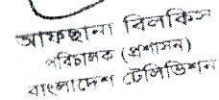 আফছানা বিলকিস
পরিচালক (প্রশাসন)
বাংলাদেশ টেলিভিশন